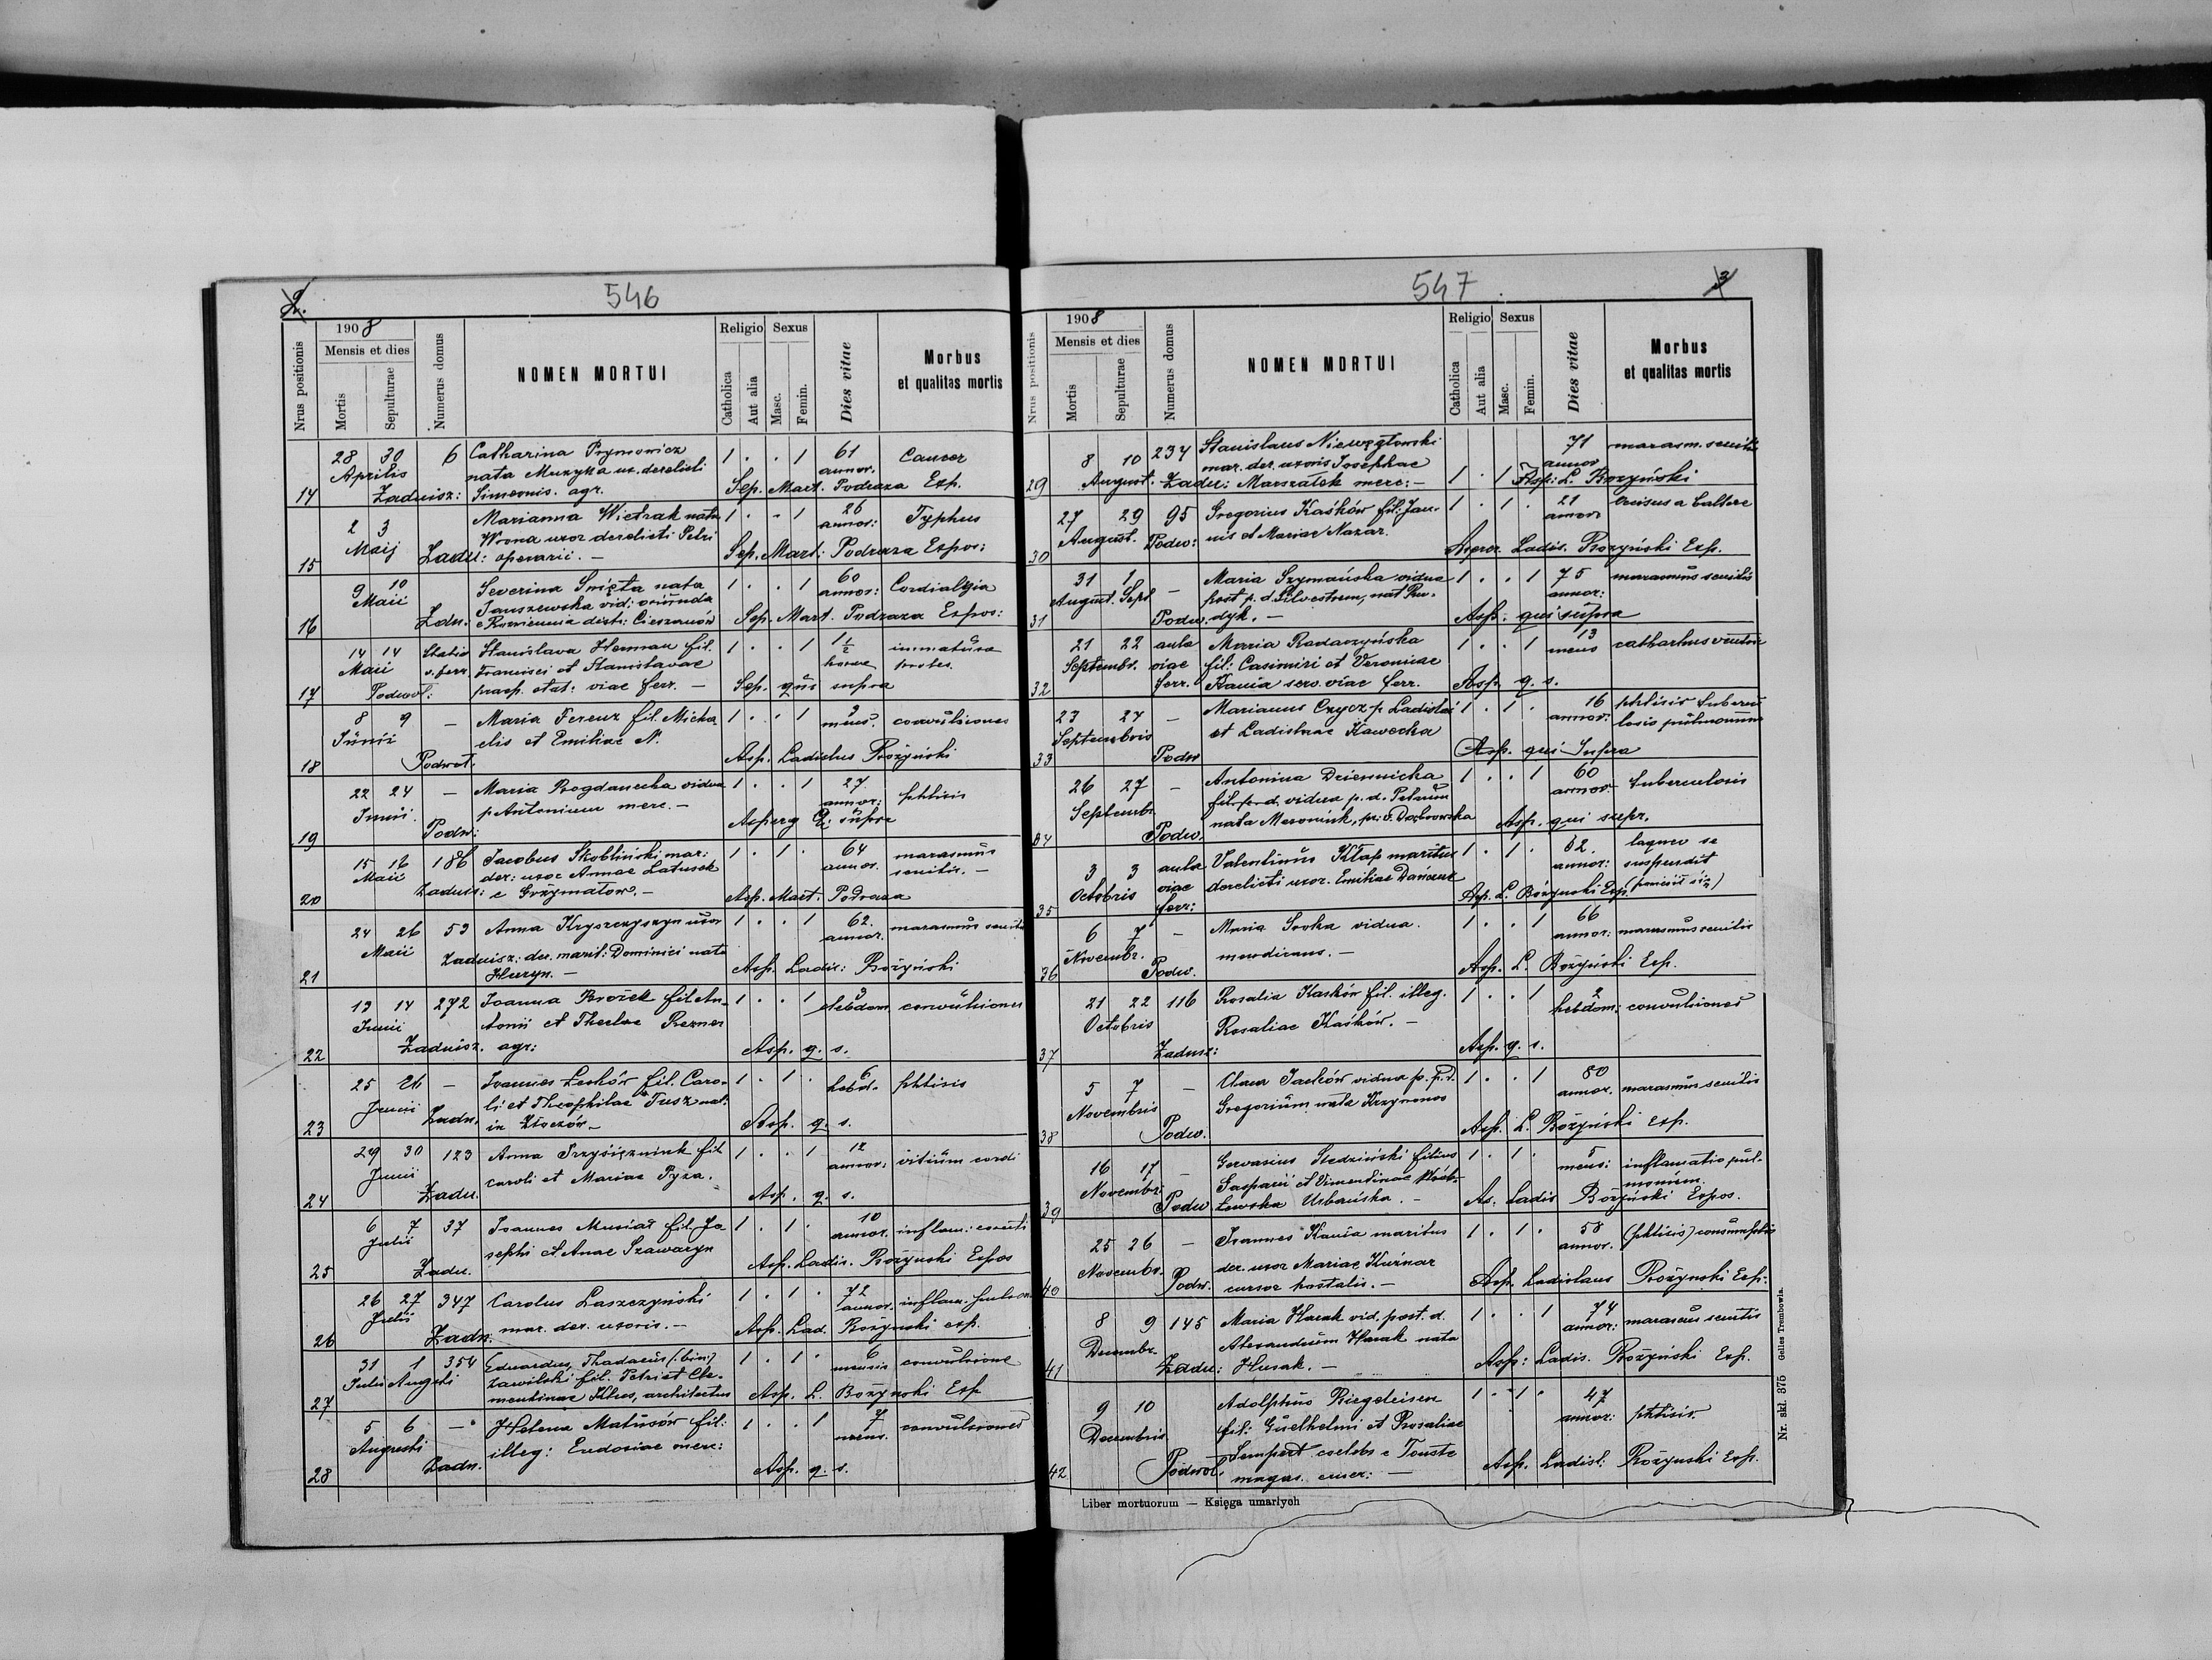 2.
546
1908
Nrus positionis
Mensis et dies
Mortis
Sepulturae
Numerus domus
NOMEN MORTUI
Religio
Catholica
Aut alia
Sexus
Masc.
Femin.
Dies vitae
Morbus
et qualitas mortis
14 28 30 Aprilis 6 Zadnisz:
Catharina Prymowicz
nata Muzyka ux. derelicti
Simeonis. agr.
1 . . 1 61 annor. Cancer
Sep. Mart. Podraza Exp.
15 2 3 Maij Zadn:
Marianna Wietrak nata
Wrona uxor derelicti Petri
operarii. —
1 . . 1 26 annor: Typhus
Sep. Mart: Podraza Expos:
16 9 10 Maii Zdn.
Severina Święta nata
Januszewska vid: oriunda
e Rozwiennia distr: Cieszanów
1 . . 1 60 annor: Cordialgia
Sep. Mart. Podraza Expos:
17 14 14 Maii Statio v. ferr. Podwoł:
Stanislava Herman fil.
Francisci et Stanislavae
praef. stat: viae ferr. —
1 . . 1 1/2 horae immatura
Sep. qui supra
18 8 9 Junii — Podwoł.
Maria Ferenz fil. Micha
elis et Emiliae N.
1 . . 1 3 mens. convulsiones
Asp. Ladislus Bożyński
19 22 24 Junii — Podw:
Maria Bogdanecka vidua
p. Antonium merc. —
1 . . 1 27 annor: phtisis
Asperg Q: supra
20 15 16 Maii 186 Zadnis:
Jacobus Skobliński mar:
der: uxor Annae Latusek
e Grzymałów. —
1 . 1 . 64 annor. marasmus
senilis. —
Asp. Mart. Podraza
21 24 26 Maii 53 Zadnisz:
Anna Kryszczyszyn uxor
der. marit: Dominici nata
Huryn. —
1 . . 1 62. annor. marasmus senilis
Asp. Ladis: Bożyński
22 13 14 Junii 272 Zadnisz.
Joanna Brożek fil An-
tonii et Theclae Rezner
agr:
1 . . 1 3 hebdom. convulsiones
Asp. q. s.
23 25 26 Junii — Zadn.
Joannes Lesków fil. Caro-
li et Theophilae Tusz nat:
in Złoczów —
1 . 1 . 6 hebd. phtisis
Asp. q. s.
24 29 30 Junii 123 Zadn.
Anna Przysiężniuk fil
Caroli et Mariae Pyza.
1 . . 1 12 annor: vitium cordi
Asp. q. s.
25 6 7 Julii 37 Zadn.
Joannes Musiał fil. Jo
sephi et Anae Szawaryn
1 . 1 . 10 annor. inflam:
Asp. Ladis. Bożyński Expos
26 26 27 Julii 347 Zadn.
Carolus Laszczyński
mar. der. uxoris. —
1 . 1 . 72 annor. inflam:
Asp. Lad. Bożyński exp.
27 31 1 Julii Augusti 354
Eduardus, Thadaeus (:bin:)
Zawilski fil. Petri et Cle-
mentinae Illus, architectus
1 . 1 . 6 mensis convulsione
Asp. L. Bożyński Exp
28 5 6 Augusti — Zadn.
Helena Matusów fil:
illeg: Eudosiae merc:
1 . . 1 7 mens. convulsiones
Asp. q. s.
547
3
1908
Nrus positionis
Mensis et dies
Mortis
Sepulturae
Numerus domus
NOMEN MORTUI
Religio
Catholica
Aut alia
Sexus
Masc.
Femin.
Dies vitae
Morbus
et qualitas mortis
29 8 10 August. 234 Zadn:
Stanislaus Niewęgłowski
mar. der. uxoris Josephae
Marszałek merc: —
1 . 1 71 annor marasm. senilis
Asp: L. Bożyński
30 27 29 August. 95 Podw:
Gregorius Kaśków fil. Jan-
nis et Mariae Nazar.
1 . 1 . 21 annor
Asper. Ladis. Bożyński Exp.
31 31 1 August. Sept — Podw.
Maria Szymańska vidua
post p. d. Silvestrum, nat Ru-
dyk. —
1 . . 1 75 annor: marasmus senilis
Asp. qui supra
32 21 22 Septembr. aula viae ferr.
Maria Radaszyńska
fil: Casimiri et Veronicae
Kania serv. viae ferr.
1 . . 1 13 mens
Asp. q. s.
33 23 24 Septembris — Podw
Marianus Czycz p. Ladislai
et Ladislaae Kawecka
1 . 1 . 16 annor. phtisis tubercu
losis pulmonum
Asp. qui Supra
34 26 27 Septembr. — Podw.
Antonina Dziennicka
fil. p. d. vidua p. d. Petrum
nata Meroniuk, pr: v. Dąbrowska
1 . . 1 60 annor. tuberculosis
Asp. qui supr.
35 3 3 Octobris aula viae ferr:
Valentinus Kłap maritus
derelicti uxor. Emiliae Danczuk
1 . 1 . 52. annor: laqueo se
suspendit
(powiesił się)
Asp. L. Bożyński Exp.
36 6 7 Novembr. — Podw.
Maria Sroka vidua.
mendicans. —
1 . . 1 66 annor: marasmus senilis
Asp. L. Bożyński Exp.
37 21 22 Octobris 116 Zadnsz:
Rosalia Kaśków fil. illeg.
Rosaliae Kaśków. —
1 . . 1 2 hebdom: convulsiones
Asp. q. s.
38 5 7 Novembris — Podw.
Clara Jacków vidua p. p. d.
Gregorium nata Krzywonos
1 . . 1 80 annor. marasmus senilis
Asp. L. Bożyński exp.
39 16 17 Novembr. — Podw
Gervasius Sledziński filius
Gasparii et
Urbańska. —
1 . 1 . 5 mens: inflamatio pul-
monum.
As. Ladis Bożyński Expos.
40 25 26 Novembr. — Podw.
Joannes Kania maritus
der. uxor Mariae Kuśnar
cursor postalis. —
1 . 1 . 58 annor. (phtisis) consumptio
Asp. Ladislaus Bożyński Exp.
41 8 9 Decembr. 145 Zadn:
Maria Harak vid. post. d.
Alexandrum Harak nata
Husak. —
1 . . 1 74 annor: marasmu senilis
Asp: Ladis. Bożyński Exp.
42 9 10 Decembris Podwoł.
Adolphus Biegeleisen
fil: Guelhelmi et Rosaliae
Lempert coelebs e Touste
magas. emer: —
1 . 1 . 47 annor: phtisis.
Asp. Ladisl: Bożyński Exp.
Liber mortuorum — Księga umarłych
Nr. skł. 375 Gelles Trembowla.